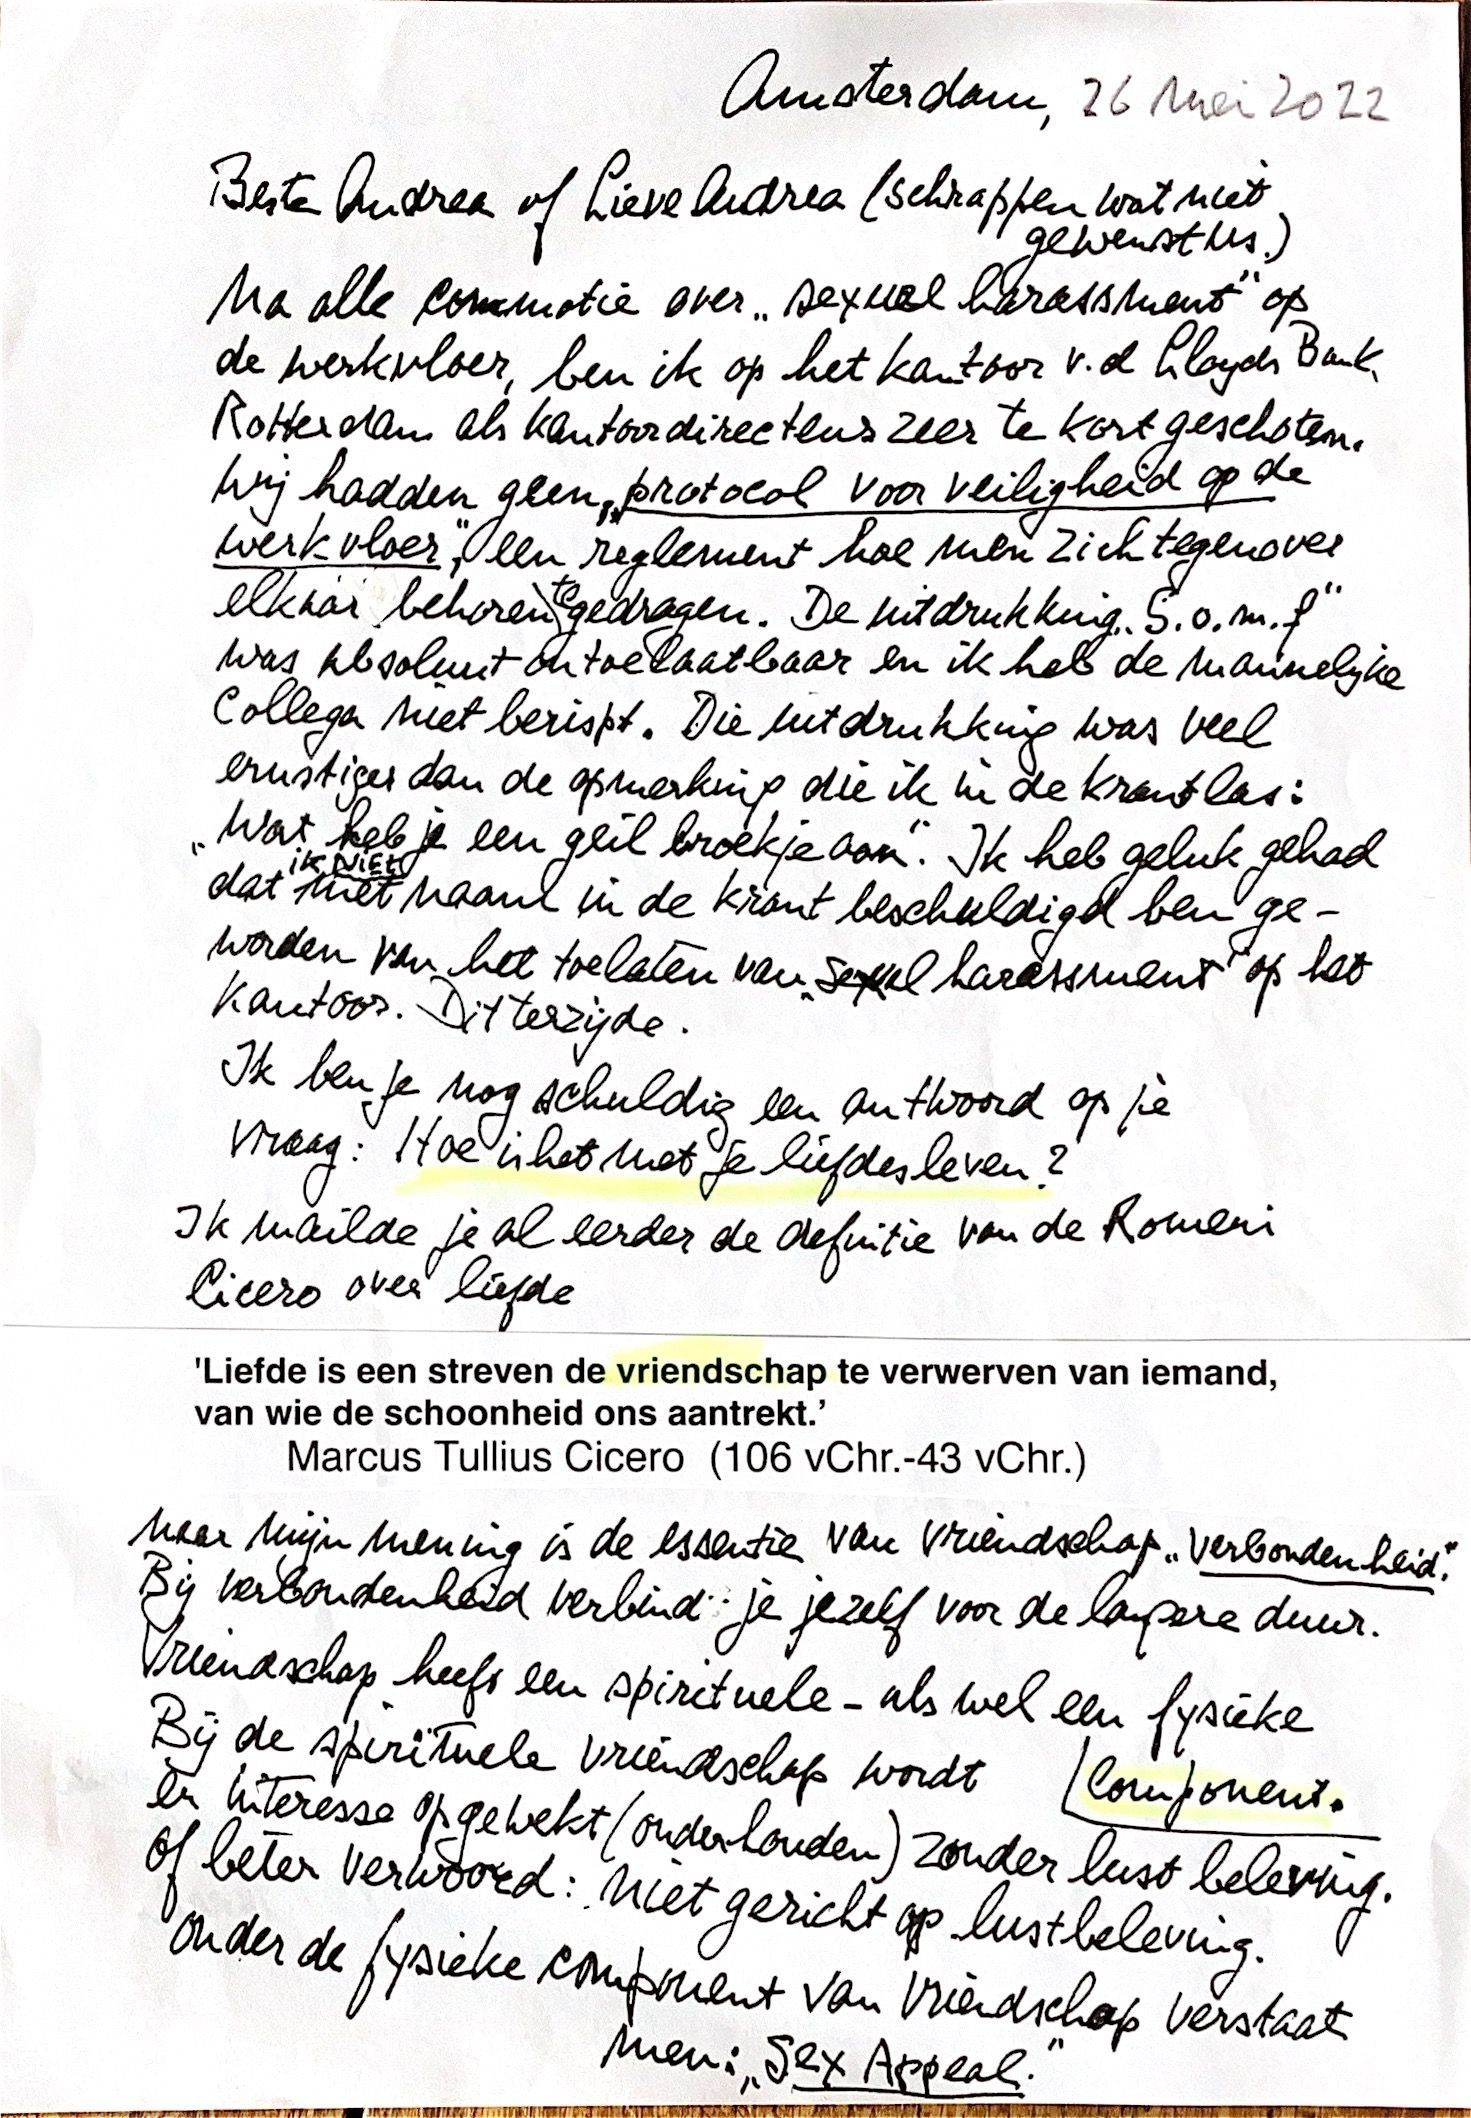 Amsterdam, 26 Mei 2022
Beste Andrea of Lieve Andrea (schrappen wat niet
gewenst is.)
Na alle commotie over „sexuel harassment" op
de werkvloer, ben ik op het kantoor v.d Lloyds Bank
Rotterdam als kantoordirecteur zeer te kort geschoten.
Wij hadden geen „protocol voor veiligheid op de
werkvloer", een reglement hoe men zich tegenover
elkaar behoren te gedragen. De uitdrukking „S.o.m.f"
was absoluut ontoelaatbaar en ik heb de mannelijke
Collega niet berispt. Die uitdrukking was veel
ernstiger dan de opmerking die ik in de krant las:
„Wat heb je een geil broekje aan". Ik heb geluk gehad
dat ik NIET met naam in de krant beschuldigd ben ge-
worden van het toelaten van „sexuel harassment" op het
Kantoor. Dit terzijde.
Ik ben je nog schuldig een antwoord op je
vraag: Hoe is het met je liefdesleven?
Ik mailde je al eerder de definitie van de Romein
Cicero over liefde
'Liefde is een streven de vriendschap te verwerven van iemand,
van wie de schoonheid ons aantrekt.’
Marcus Tullius Cicero (106 vChr.-43 vChr.)
naar mijn mening is de essentie van vriendschap „verbondenheid."
Bij verbondenheid verbind je jezelf voor de langere duur.
Vriendschap heeft een spirituele - als wel een fysieke
component.
Bij de spirituele vriendschap wordt
er interesse opgewekt (onderhouden) zonder lust beleving.
Of beter verwoord: niet gericht op lustbeleving.
Onder de fysieke component van vriendschap verstaat
men: „Sex Appeal."